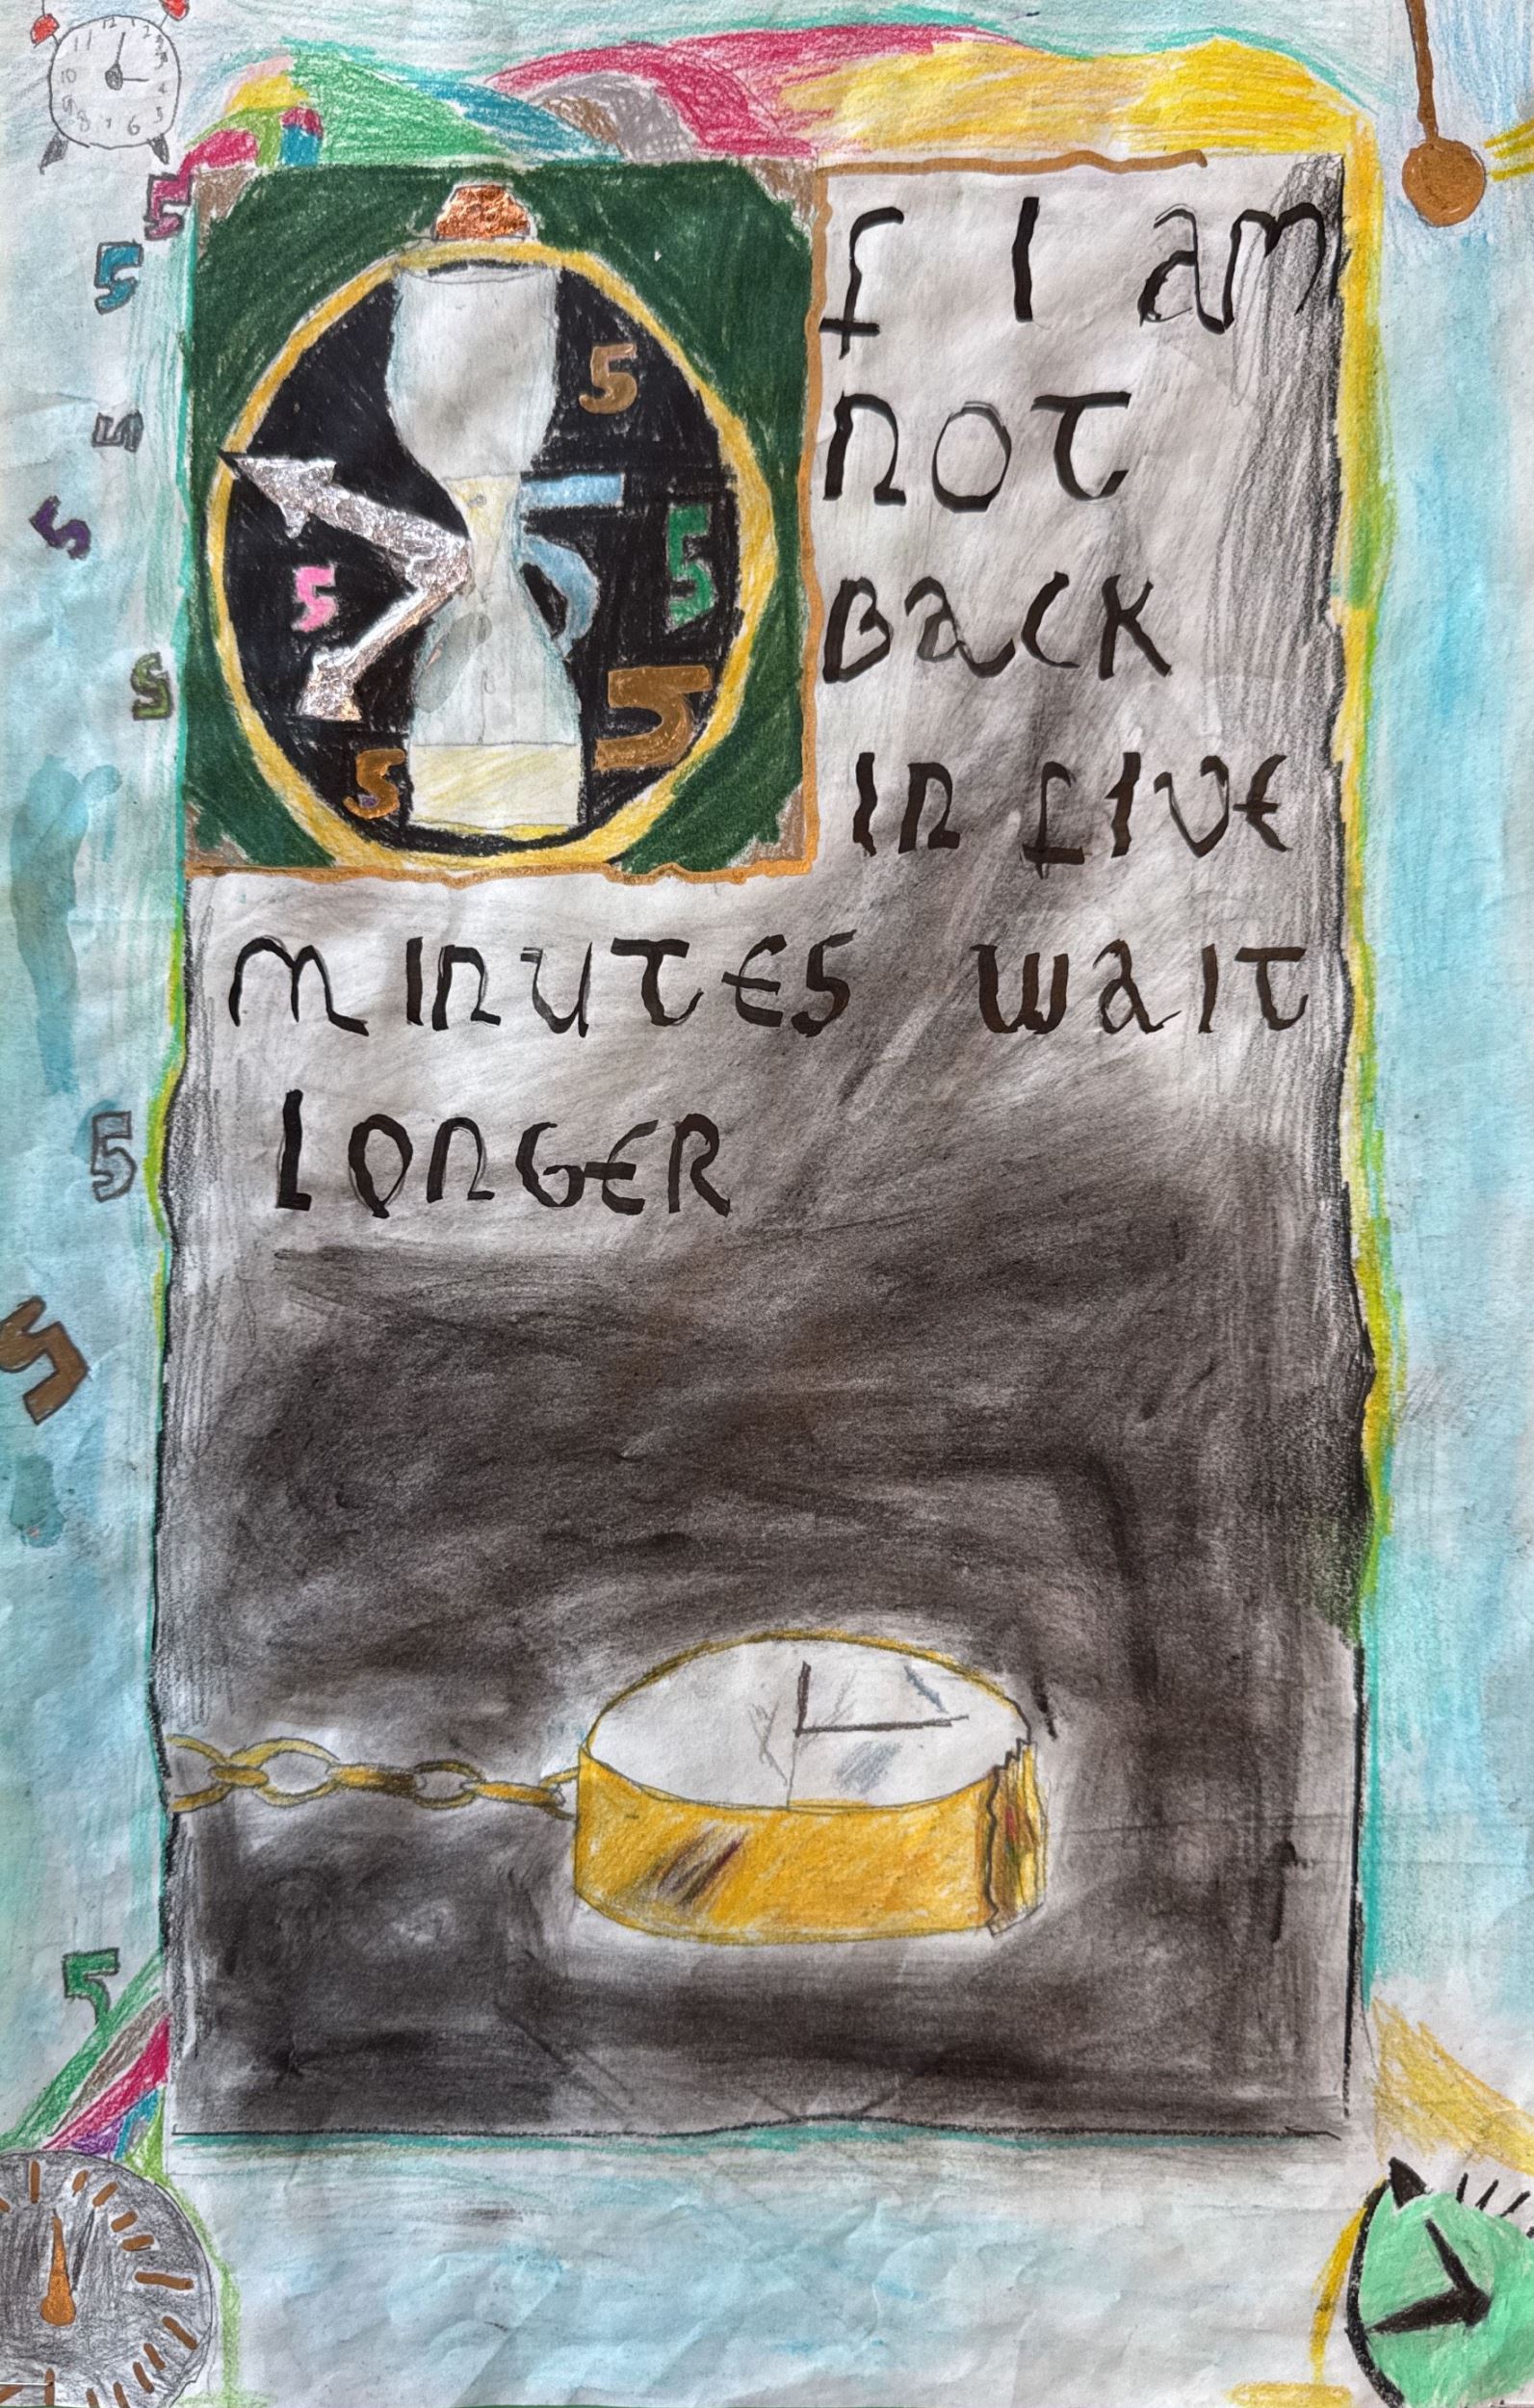 If I am
not
back
in five
minutes wait
longer